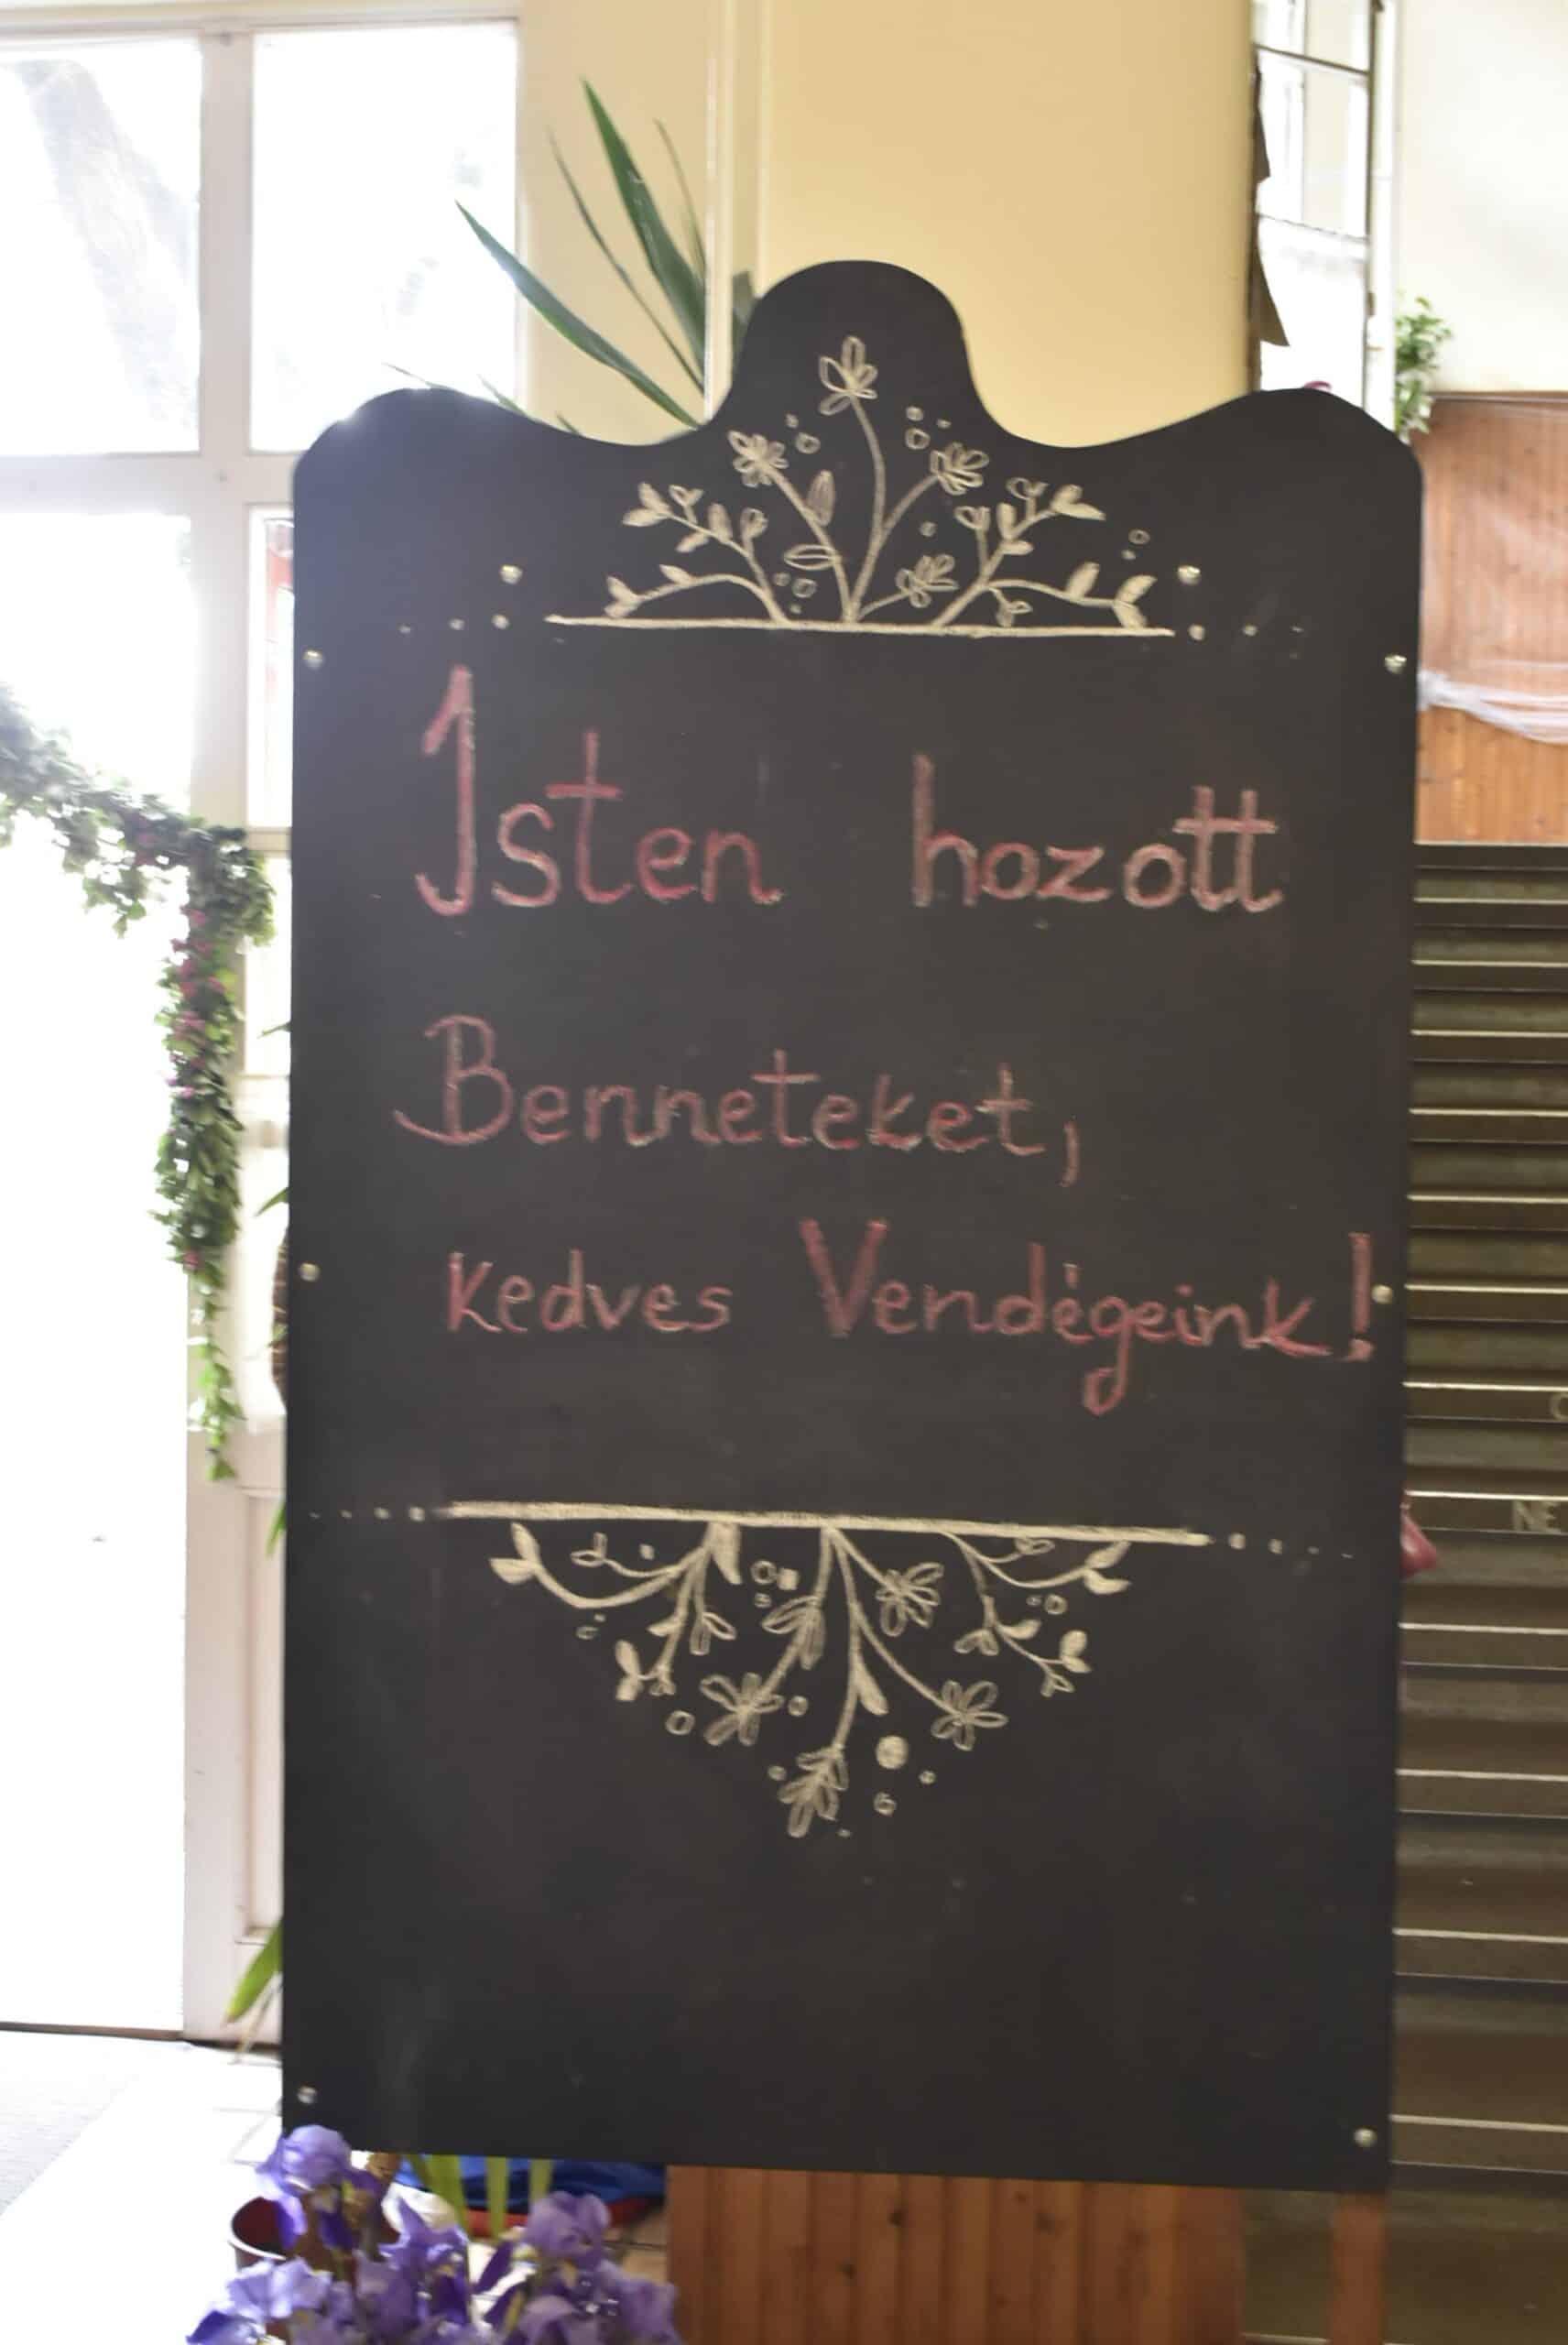 Isten hozott
Benneteket,
kedves Vendégeink!
NE